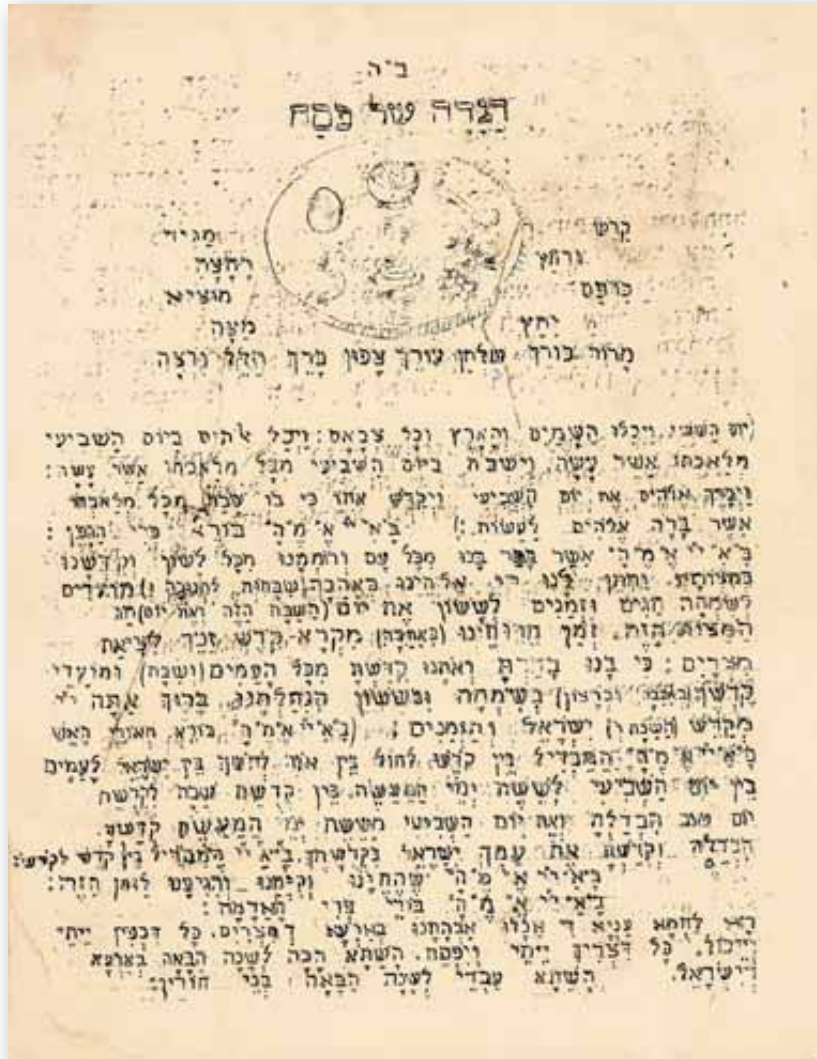 ב"ה
הַגָּדָה שֶׁל פֶּסַח
קַדֵּשׁ מַגִּיד
וּרְחַץ רָחְצָה
כַּרְפַּס מוֹצִיא
יַחַץ מַצָּה
מָרוֹר כּוֹרֵךְ שֻׁלְחָן עוֹרֵךְ צָפוּן בָּרֵךְ הַלֵּל נִרְצָה
(יום הַשִּׁשִּׁי. וַיְכֻלּוּ הַשָּׁמַיִם וְהָאָרֶץ וְכָל צְבָאָם: וַיְכַל אלהים בַּיּוֹם הַשְּׁבִיעִי
מְלַאכְתּוֹ אֲשֶׁר עָשָׂה, וַיִּשְׁבֹּת בַּיּוֹם הַשְּׁבִיעִי מִכָּל מְלַאכְתּוֹ אֲשֶׁר עָשָׂה:
וַיְבָרֶךְ אֱלֹהִים אֶת יוֹם הַשְּׁבִיעִי וַיְקַדֵּשׁ אֹתוֹ כִּי בוֹ שָׁבַת מִכָּל מְלַאכְתּוֹ
אֲשֶׁר בָּרָה אֱלֹהִים לַעֲשׂוֹת:) בָּ"אַ"יְ"אֱ"מֶ"הָ" בּוֹרֵא פְּרִי הַגָּפֶן:
בָּ"אַ"יְ"אֱ"מֶ"הָ" אֲשֶׁר בָּחַר בָּנוּ מִכָּל עָם וְרוֹמְמָנוּ מִכָּל לָשׁוֹן וְקִדְּשָׁנוּ
בְּמִצְוֹתָיו. וַתִּתֶּן לָנוּ יי אֱלֹהֵינוּ בְּאַהֲבָה (שַׁבָּתוֹת לִמְנוּחָה וּ) מוֹעֲדִים
לְשִׂמְחָה חַגִּים וּזְמַנִּים לְשָׂשׂוֹן אֶת יוֹם (הַשַּׁבָּת הַזֶּה וְאֶת יוֹם) חַג
הַמַּצּוֹת הַזֶּה. זְמַן חֵרוּתֵינוּ (בְּאַהֲבָה) מִקְרָא קֹדֶשׁ זֵכֶר לִיצִיאַת
מִצְרָיִם: כִּי בָנוּ בָחַרְתָּ וְאוֹתָנוּ קִדַּשְׁתָּ מִכָּל הָעַמִּים (וְשַׁבָּת) וּמוֹעֲדֵי
קָדְשֶׁךָ (בְּאַהֲבָה וּבְרָצוֹן) בְּשִׂמְחָה וּבְשָׂשׂוֹן הִנְחַלְתָּנוּ. בָּרוּךְ אַתָּה יי
מְקַדֵּשׁ (הַשַּׁבָּת וְ) יִשְׂרָאֵל וְהַזְּמַנִּים: (בָּ"אַ"יְ"אֱ"מֶ"הָ" בּוֹרֵא מְאוֹרֵי הָאֵשׁ
בָּ"אַ"יְ"אֱ"מֶ"הָ" הַמַּבְדִּיל בֵּין קֹדֶשׁ לְחוֹל בֵּין אוֹר לְחֹשֶׁךְ בֵּין יִשְׂרָאֵל לָעַמִּים
בֵּין יוֹם הַשְּׁבִיעִי לְשֵׁשֶׁת יְמֵי הַמַּעֲשֶׂה. בֵּין קְדֻשַּׁת שַׁבָּת לִקְדֻשַּׁת
יוֹם טוֹב הִבְדַּלְתָּ וְאֶת יוֹם הַשְּׁבִיעִי מִשֵּׁשֶׁת יְמֵי הַמַּעֲשֶׂה קִדַּשְׁתָּ.
הִבְדַּלְתָּ וְקִדַּשְׁתָּ אֶת עַמְּךָ יִשְׂרָאֵל בִּקְדֻשָּׁתֶךָ. בָּ"אַ"יְ" הַמַּבְדִּיל בֵּין קֹדֶשׁ לְקֹדֶשׁ):
בָּ"אַ"יְ"אֱ"מֶ"הָ" שֶׁהֶחֱיָנוּ וְקִיְּמָנוּ וְהִגִּיעָנוּ לַזְּמַן הַזֶּה:
בָּ"אַ"יְ"אֱ"מֶ"הָ" בּוֹרֵי פְּרִי הָאֲדָמָה:
הָא לַחְמָא עַנְיָא דִּ אֲכָלוּ אַבְהָתָנוּ בְּאַרְעָא דְּמִצְרָיִם. כָּל דִּכְפִין יֵיתֵי
וְיֵיכוֹל. כָּל דִּצְרִיךְ יֵיתֵי וְיִפְסַח. הָשַׁתָּא הָכָה לְשָׁנָה הַבָּאָה בְּאַרְעָא
דְּיִשְׂרָאֵל. הָשַׁתָּא עַבְדֵי לְשָׁנָה הַבָּאָה בְּנֵי חוֹרִין: